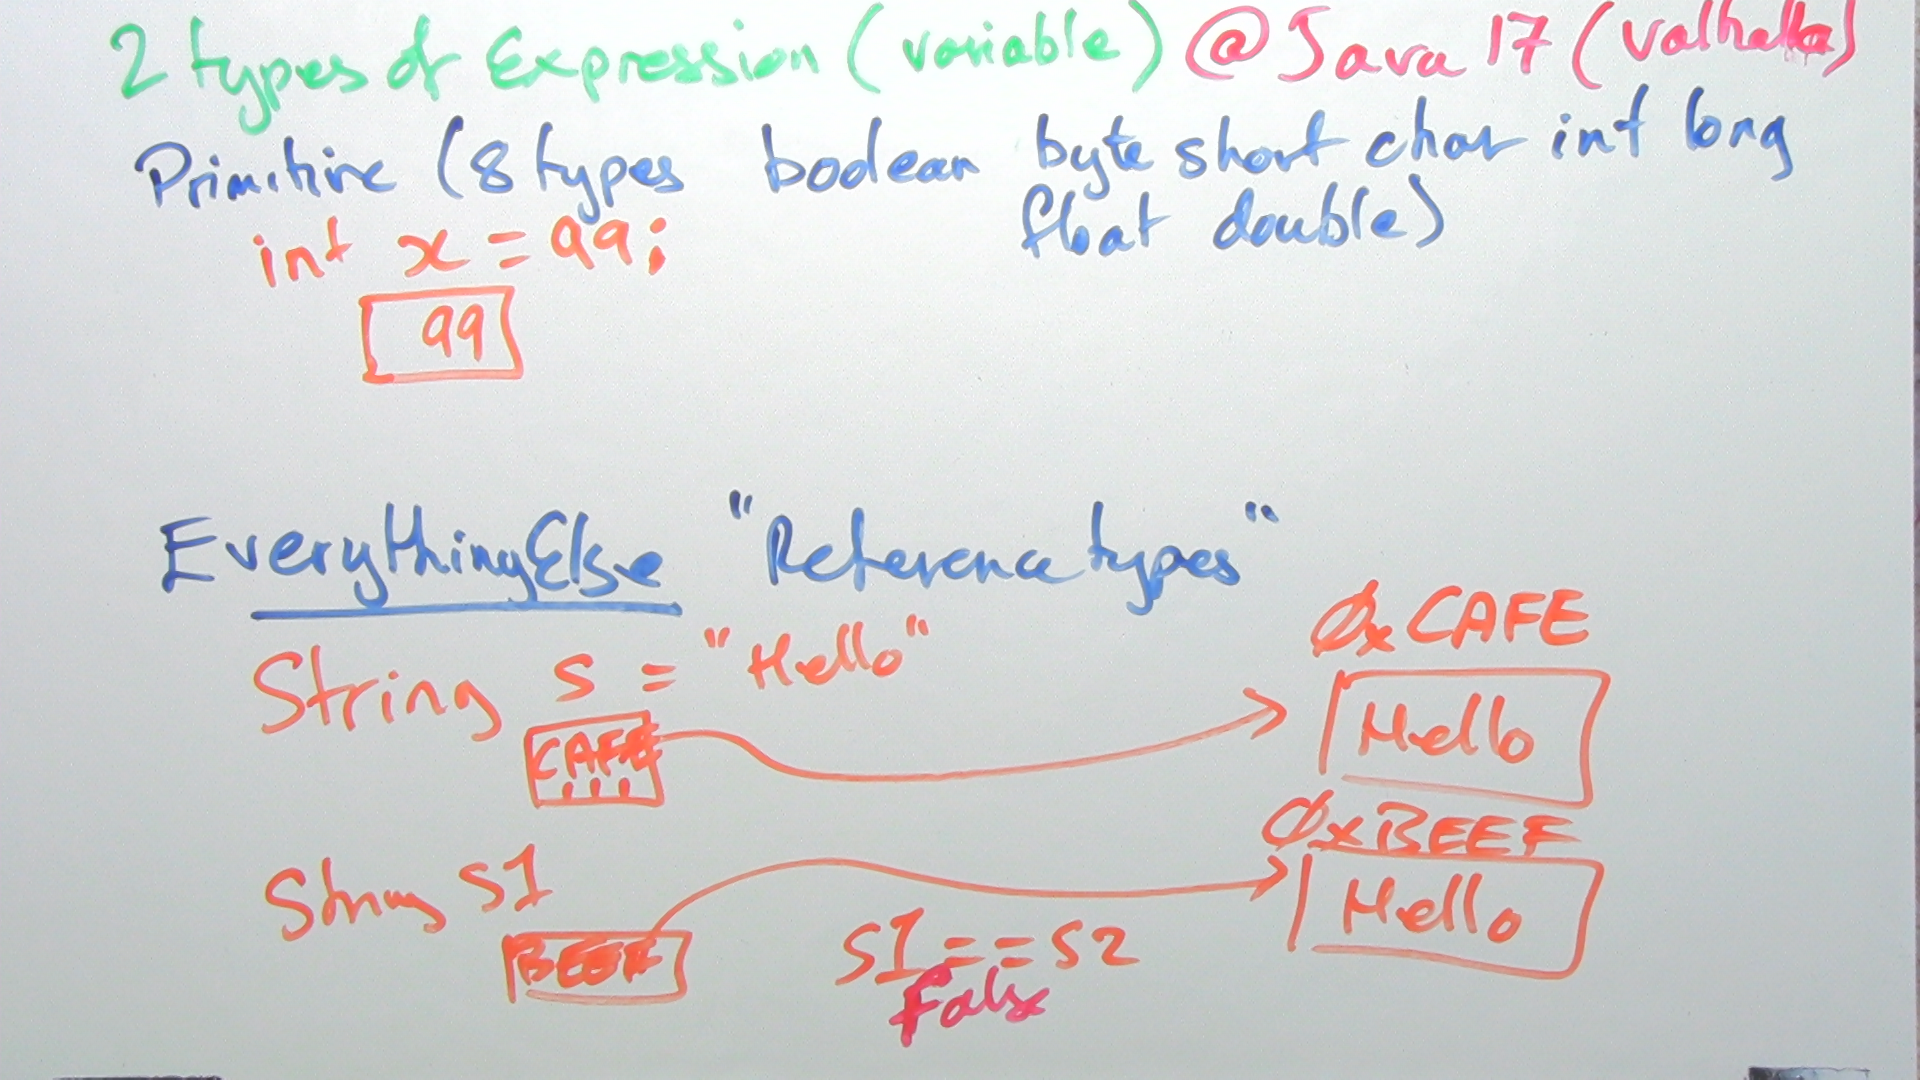 2 types of Expression (variable) @ Java 17 (Valhalla)
Primitive (8 types boolean byte short char int long
float double)
int x = 99;
99
EverythingElse "Reference types"
String s = "Hello"
0xCAFE
CAFE
...
Hello
0xBEEF
String s1
BEEF
Hello
S1 == S2
False